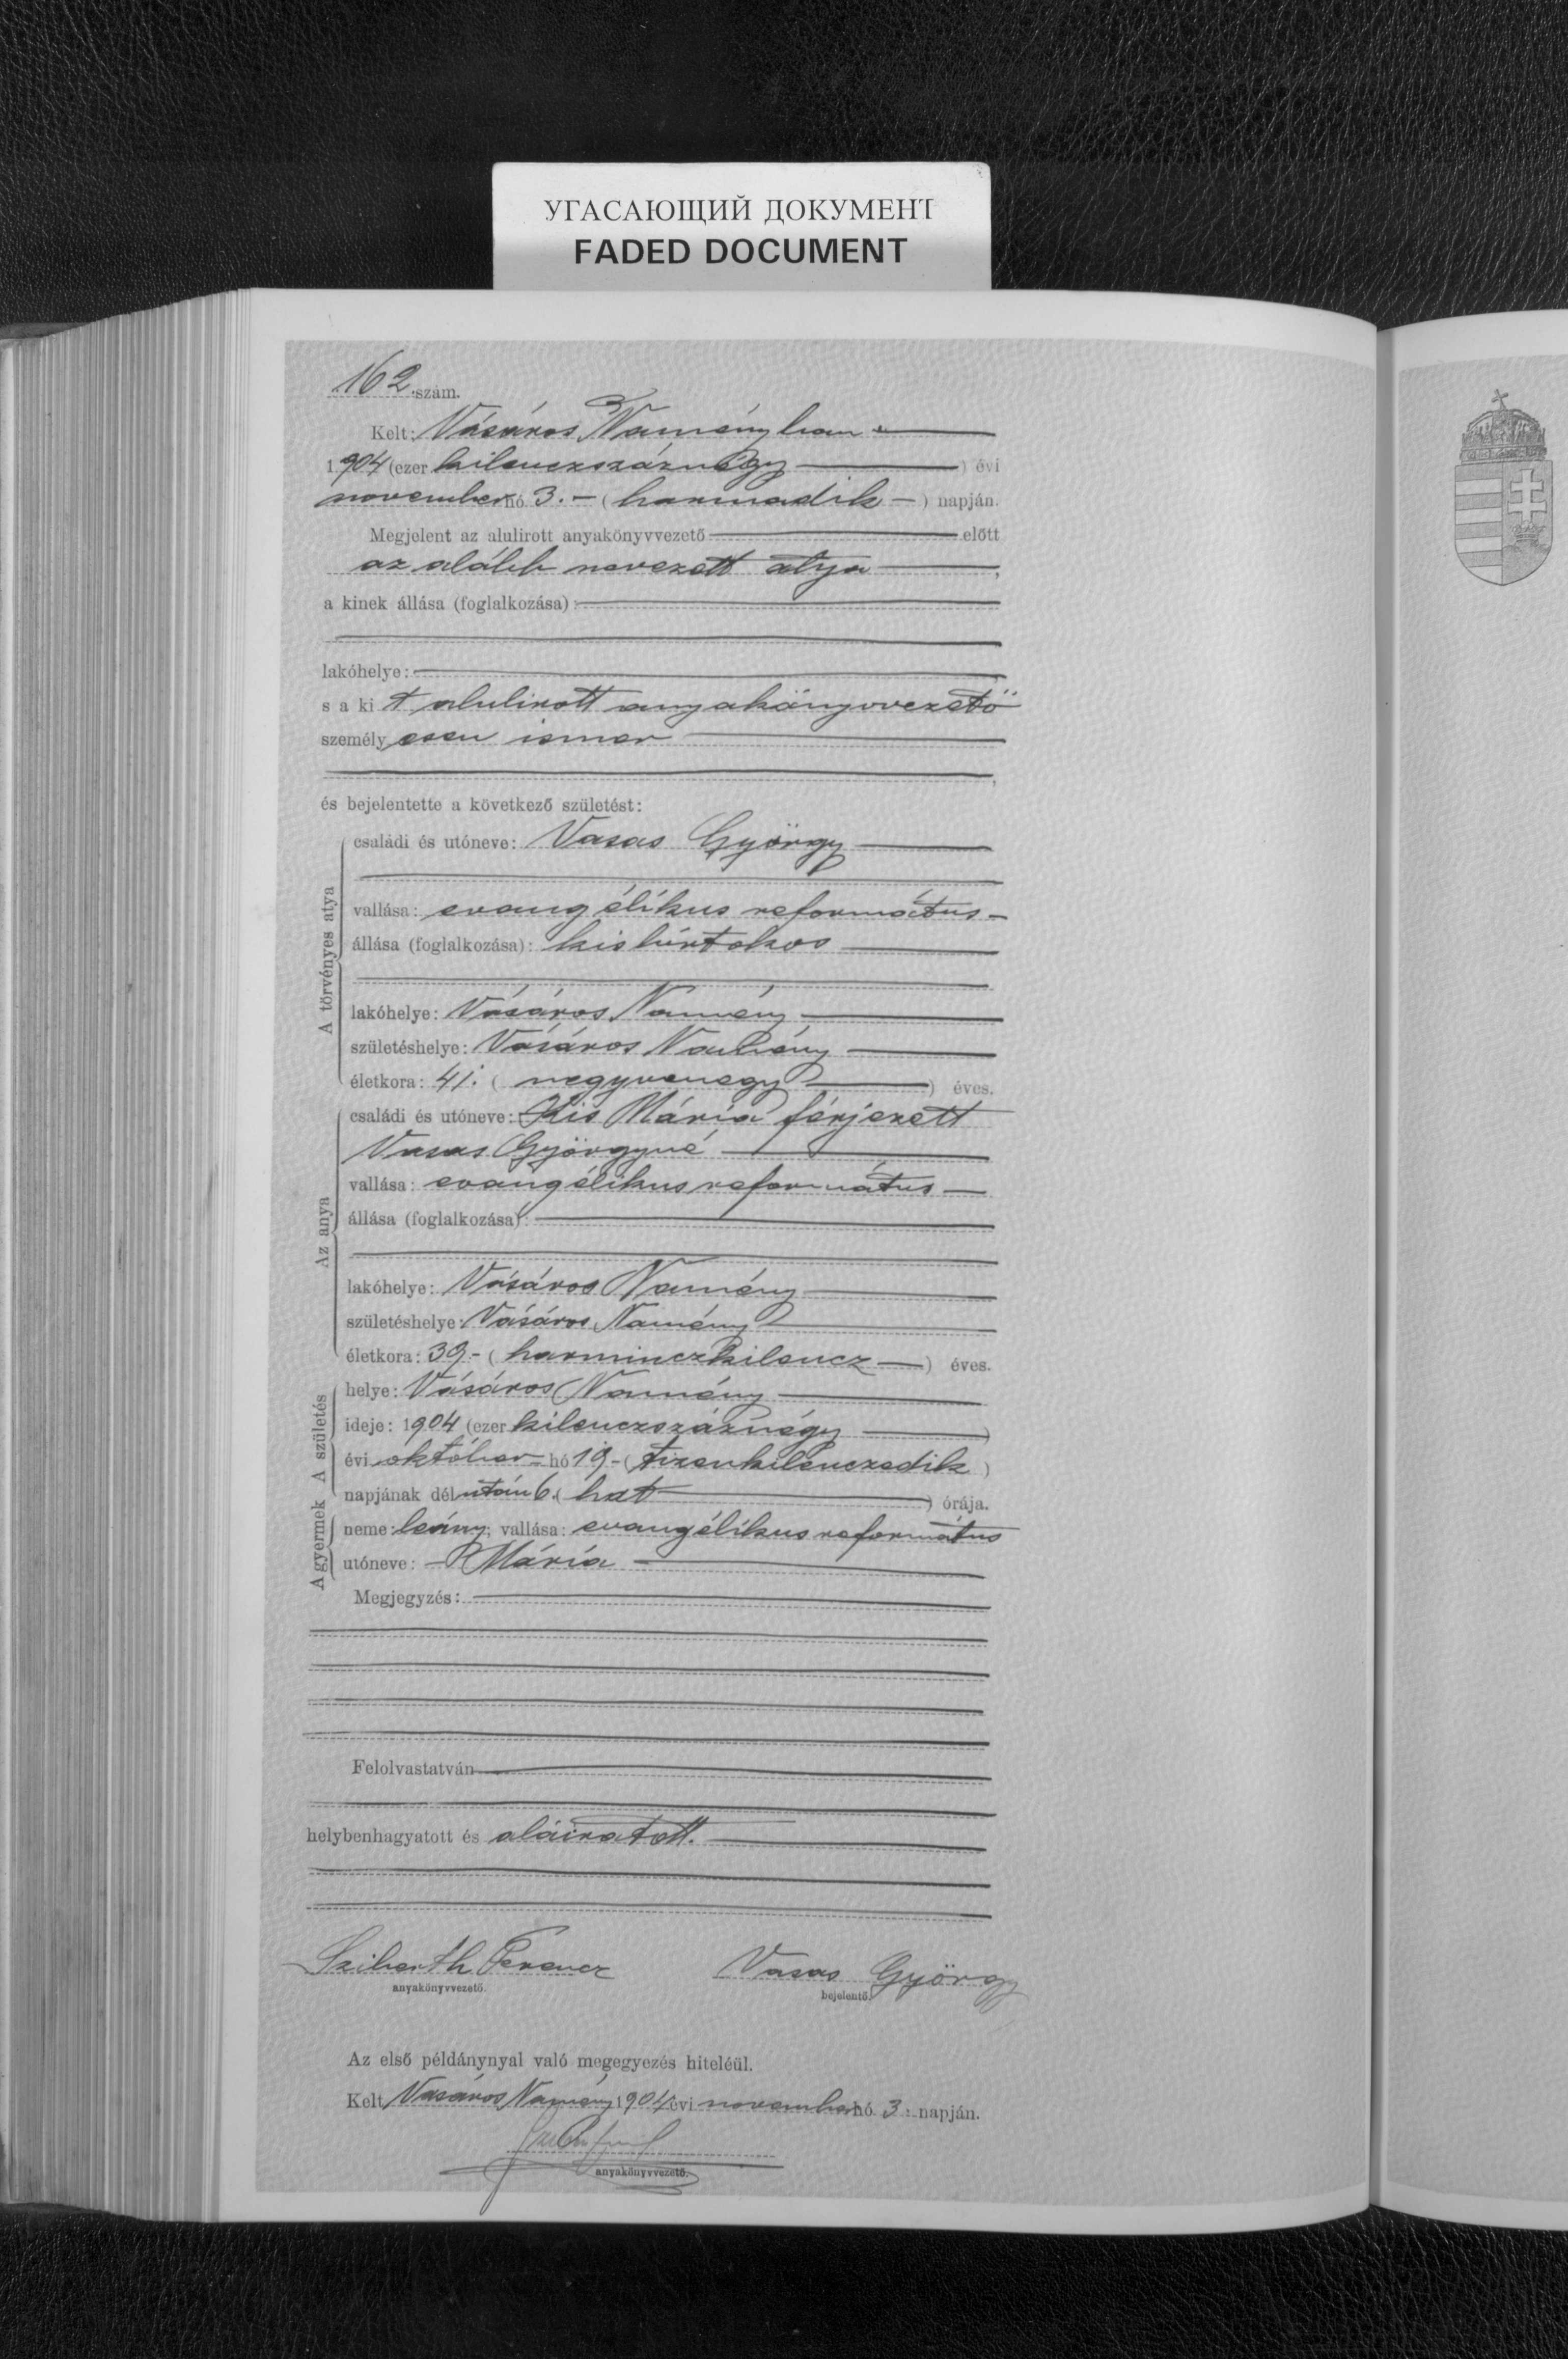 УГАСАЮЩИЙ ДОКУМЕНТ
FADED DOCUMENT
162. szám.
Kelt: Vásáros Naményban
1904 (ezer kilenczszáznégy) évi
november hó 3. (harmadik) napján.
Megjelent az alulirott anyakönyvvezető előtt
az alább nevezett atya,
a kinek állása (foglalkozása):
lakóhelye:
s a kit alulirott anyakönyvvezető
személyesen ismer
,
és bejelentette a következő születést:
A törvényes atya
családi és utóneve: Vasas György
vallása: evangélikus református
állása (foglalkozása): kisbirtokos
lakóhelye: Vásáros Namény
születéshelye: Vásáros Namény
életkora: 41. (negyvenegy) éves.
Az anya
családi és utóneve: Kis Mária férjezett
Vasas Györgyné
vallása: evangélikus református
állása (foglalkozása):
lakóhelye: Vásáros Namény
születéshelye: Vásáros Namény
életkora: 39 (harminczkilencz) éves.
A születés
helye: Vásáros Namény
ideje: 1904 (ezer kilenczszáznégy)
évi október hó 19 (tizenkilenczedik)
napjának délután 6. (hat) órája.
A gyermek
neme: leány; vallása: evangélikus református
utóneve: Mária
Megjegyzés:
Felolvastatván
helybenhagyatott és aláiratott.
Sziberth Ferencz Vasas György
anyakönyvvezető. bejelentő.
Az első példánynyal való megegyezés hiteléül.
Kelt Vasáros Namény 1904 évi november hó 3. napján.
anyakönyvvezető.